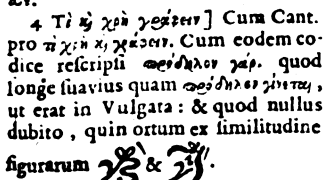 4 Τί καὶ χρὴ γράφειν] Cum Cant.
pro τί χρὴ καὶ γράφειν. Cum eodem co-
dice reſcripſi πρόδηλον γάρ. quod
longè ſuavius quam πρόδηλον γίνεται,
ut erat in Vulgata: & quod nullus
dubito, quin ortum ex ſimilitudine
figurarum &